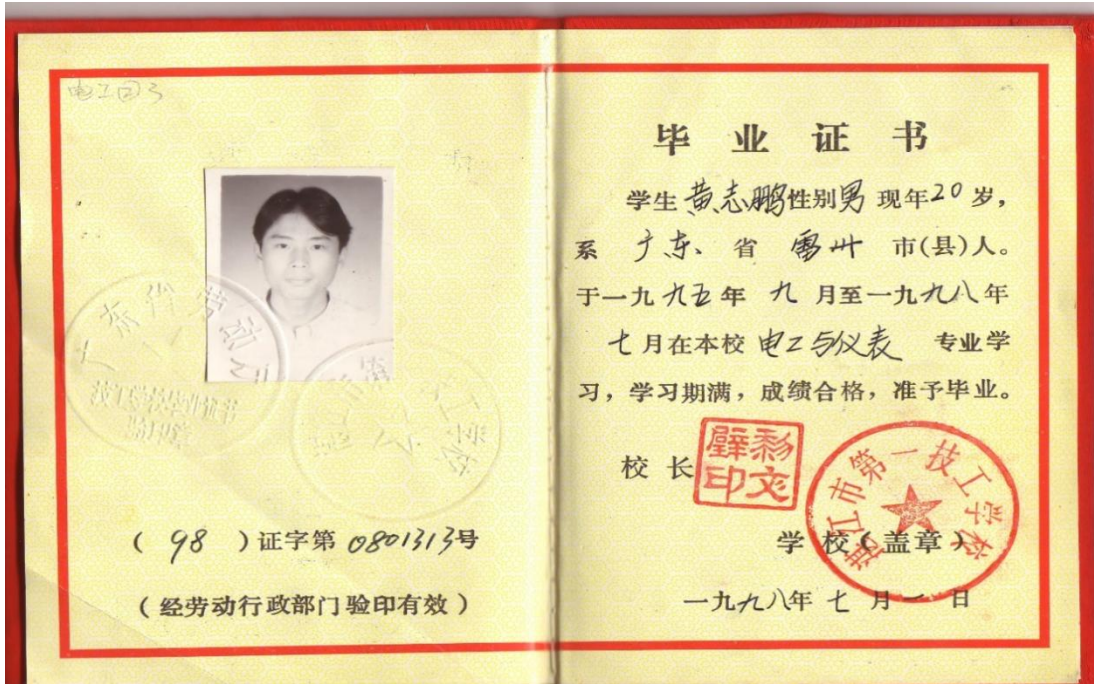 电工回3
广东省劳动厅
技工学校毕业证书
验印章
( 98 )证字第 0801313号
(经劳动行政部门验印有效)
毕业证书
学生黄志鹏性别男现年20岁，
系广东、省雷州市(县)人。
于一九九五年九月至一九九八年
七月在本校电工与仪表专业学
习，学习期满，成绩合格，准予毕业。
校长
湛江市第一技工学校
学校(盖章)
一九九八年七月一日